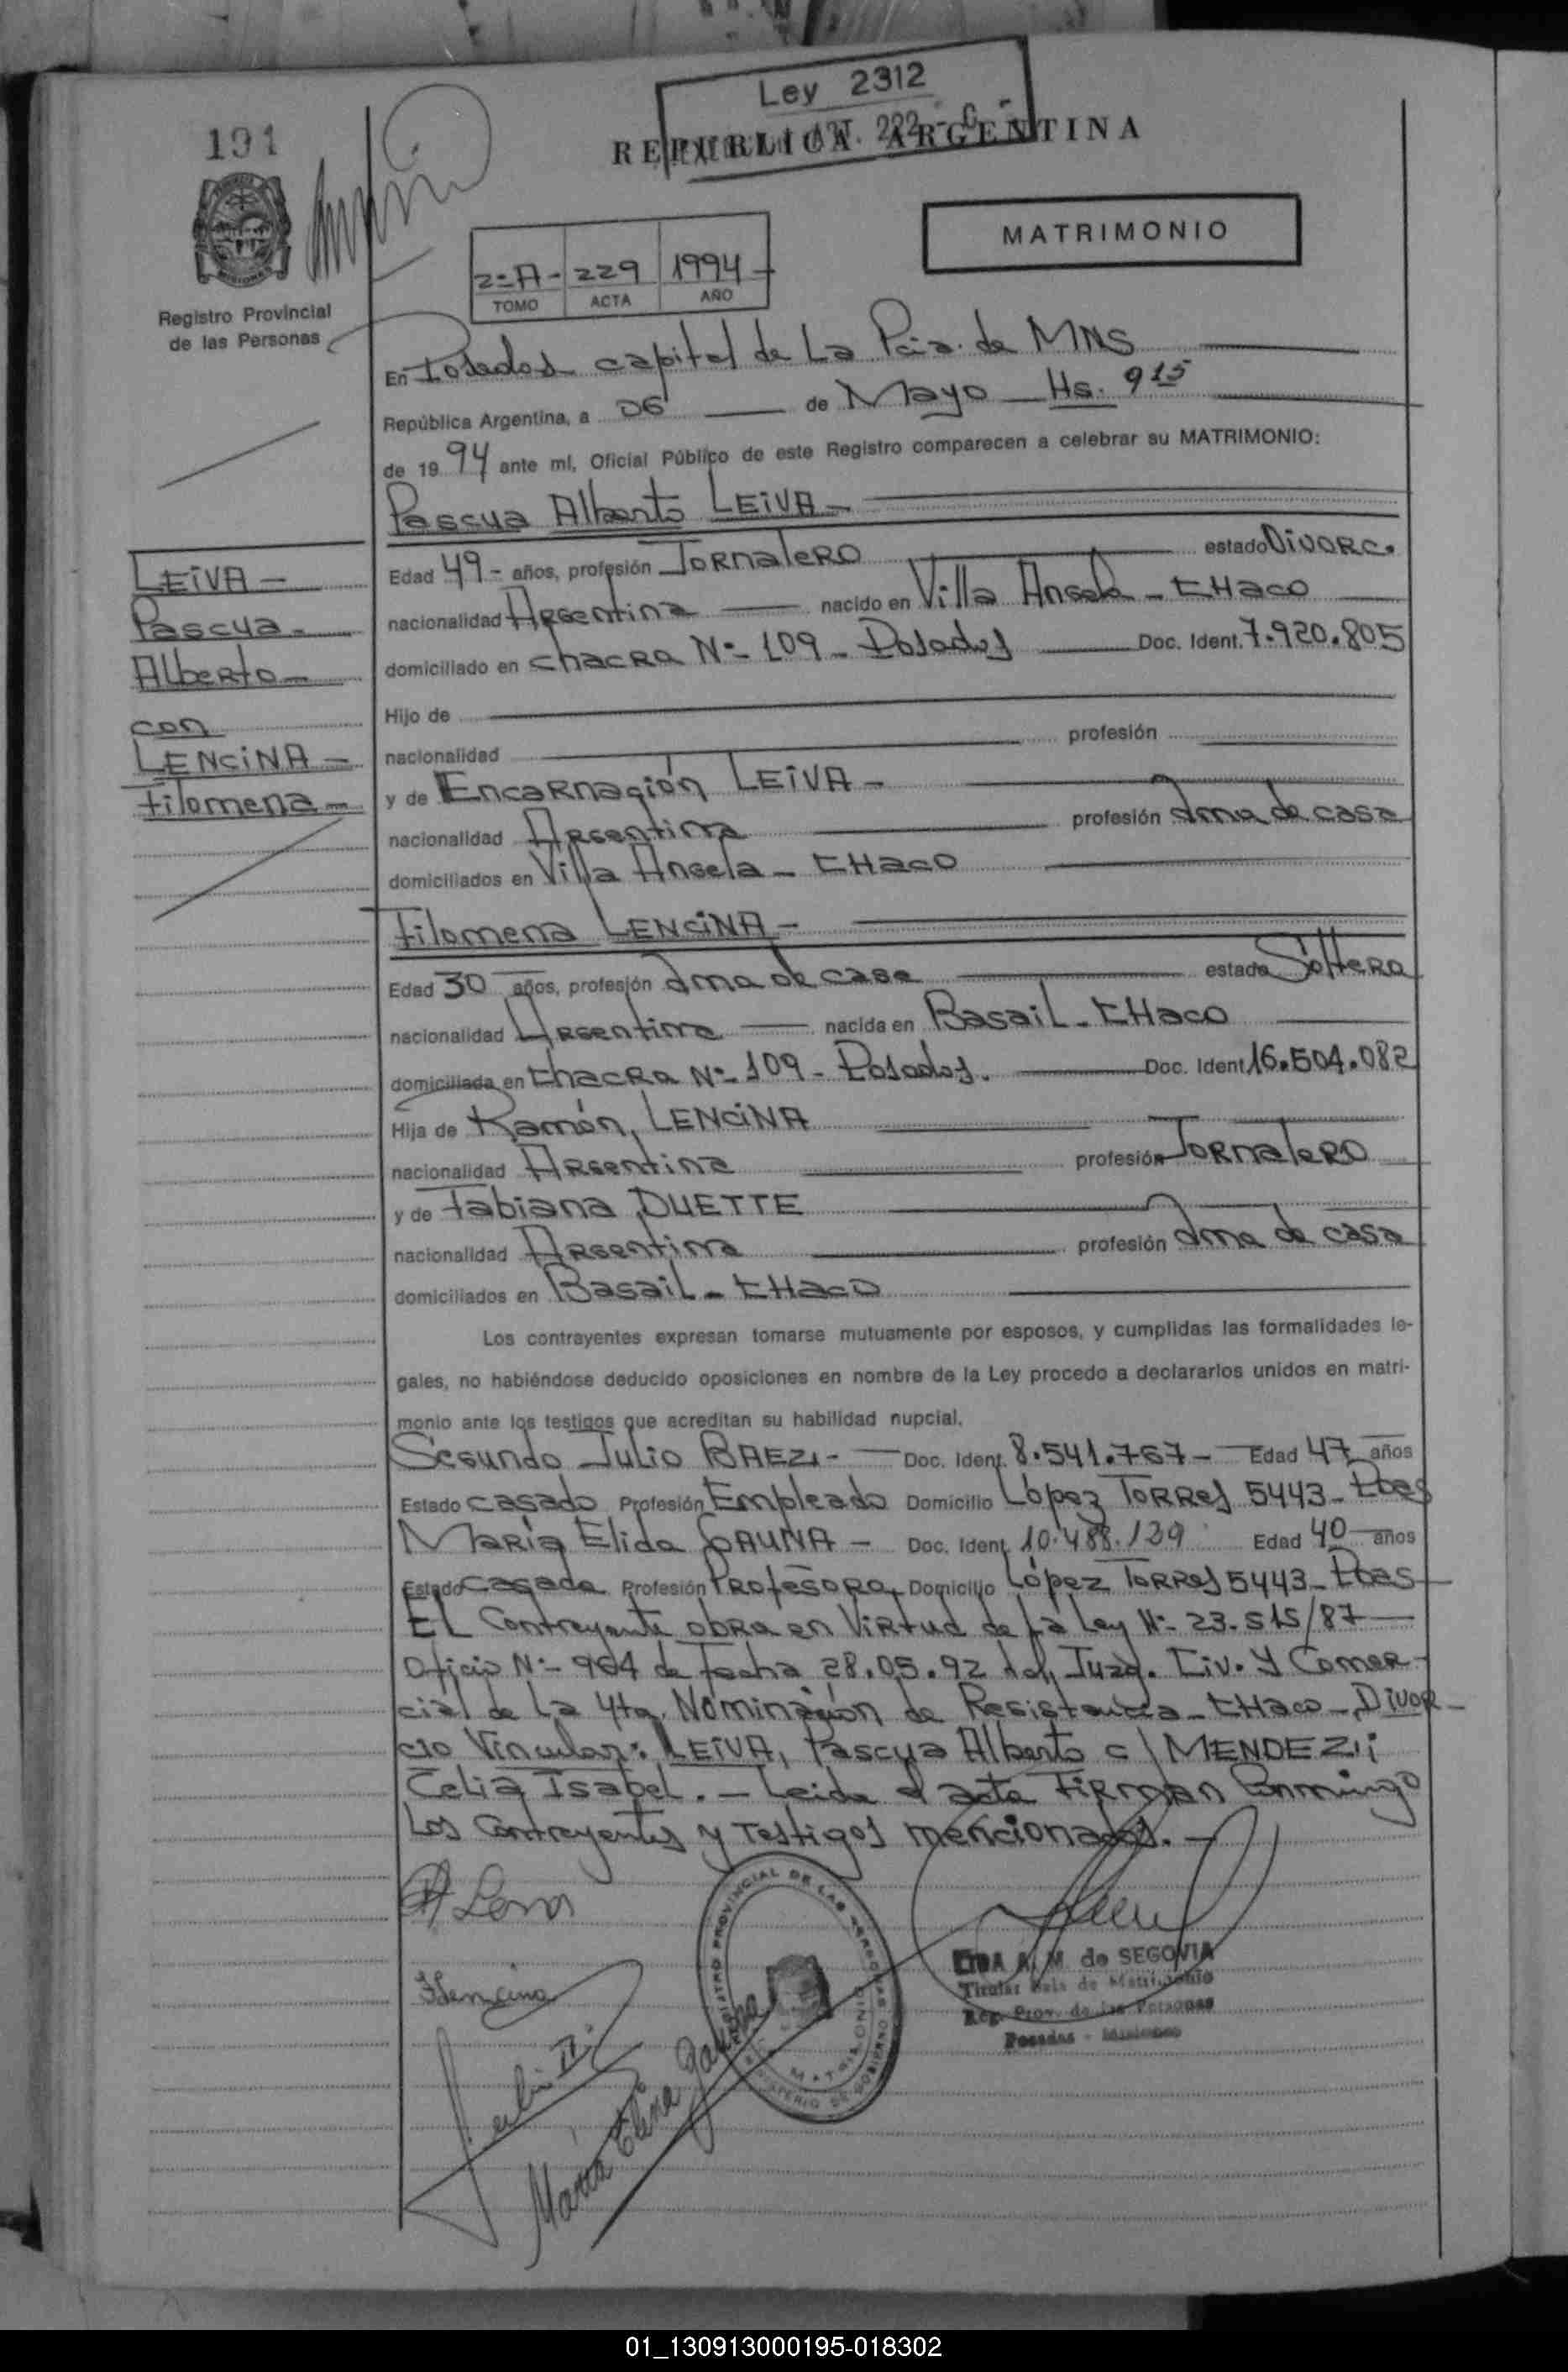 Ley 2312
191
REPUBLICA ARGENTINA
MATRIMONIO
2º A - 229 1994
TOMO ACTA AÑO
Registro Provincial
de las Personas
En Posadas capital de La Pcia. de MNS
República Argentina, a 06 de Mayo Hs. 9 15
de 19 94 ante mi, Oficial Público de este Registro comparecen a celebrar su MATRIMONIO:
Pascua Alberto LEIVA -
LEIVA -
Pascua -
Alberto -
con
LENCINA -
Filomena -
Edad 49 - años, profesión Jornalero estado Divorc.
nacionalidad Argentina nacido en Villa Angela - CHaco
domiciliado en chacra Nº 109 - Posadas Doc. Ident. 7.920.805
Hijo de
nacionalidad profesión
y de Encarnación LEIVA -
nacionalidad Argentina profesión Ama de casa
domiciliados en Villa Angela - CHaco
Filomena LENCINA -
Edad 30 años, profesión Ama de casa estado Soltera
nacionalidad Argentina nacida en Basail - CHaco
domiciliada en Chacra Nº 109 - Posadas. Doc. Ident. 16.504.082
Hija de Ramón, LENCINA
nacionalidad Argentina profesión Jornalero
y de Fabiana DUETTE
nacionalidad Argentina profesión Ama de casa
domiciliados en Basail - CHaco
Los contrayentes expresan tomarse mutuamente por esposos, y cumplidas las formalidades le-
gales, no habiéndose deducido oposiciones en nombre de la Ley procedo a declararlos unidos en matri-
monio ante los testigos que acreditan su habilidad nupcial.
Segundo Julio BAEZ - Doc. Ident. 8.541.767 - Edad 47 años
Estado casado Profesión Empleado Domicilio López Torres 5443 - Pdas
María Elida GAUNA - Doc. Ident. 10.488.139 Edad 40 años
Estado casada Profesión Profesora Domicilio López Torres 5443 - Pdas
El Contrayente obra en Virtud de La Ley Nº 23.515/87
Oficio Nº 964 de fecha 28.05.92 del Juzg. Civ. y Comer-
cial de La 4ta. Nominación de Resistencia - CHaco - Divor-
cio Vincular: LEIVA, Pascua Alberto c/ MENDEZ;
Celia Isabel. - Leida el acta Firman Conmigo
Los Contrayentes y Testigos mencionados. -
REGISTRO PROVINCIAL DE LAS PERSONAS
MINISTERIO DE GOBIERNO
MATRIMONIO
A. M. de SEGOVIA
Titular de Matrimonio
Reg. Prov. de las Personas
Posadas - Misiones
01_130913000195-018302